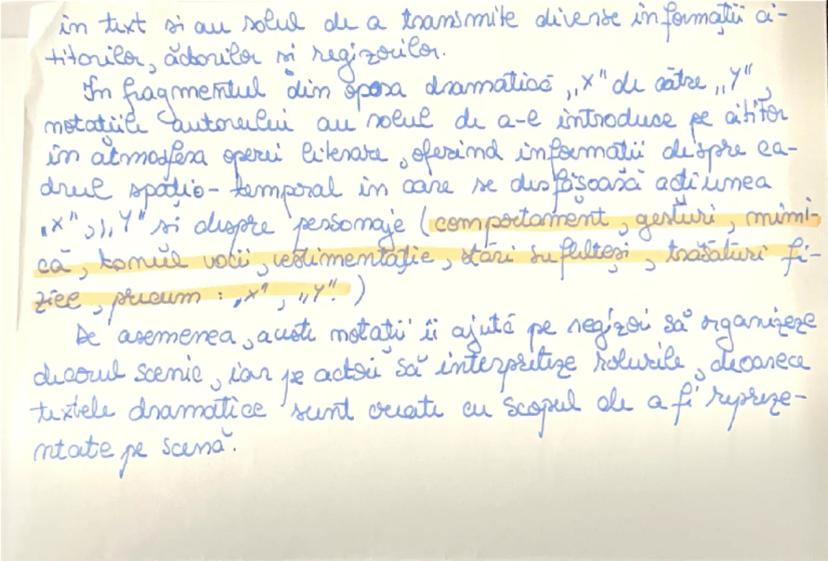 in text și au rolul de a transmite diverse informații ci-
titorilor, actorilor și regizorilor.
În fragmentul din opera dramatică „X" de către „Y",
notațiile autorului au rolul de a-l introduce pe cititor
în atmosfera operei literare, oferind informatii despre ca-
drul spațio-temporal în care se desfășoară acțiunea
„X", „Y" si despre personaje (comportament, gesturi, mimi-
că, tonul vocii, vestimentație, stări sufletești, trăsături fi-
zice, precum: „X", „Y".)
De asemenea, aceste notații îi ajută pe regizori să organizeze
decorul scenic, iar pe actori să interpreteze rolurile, deoarece
textele dramatice sunt create cu scopul de a fi repreze-
ntate pe scenă.